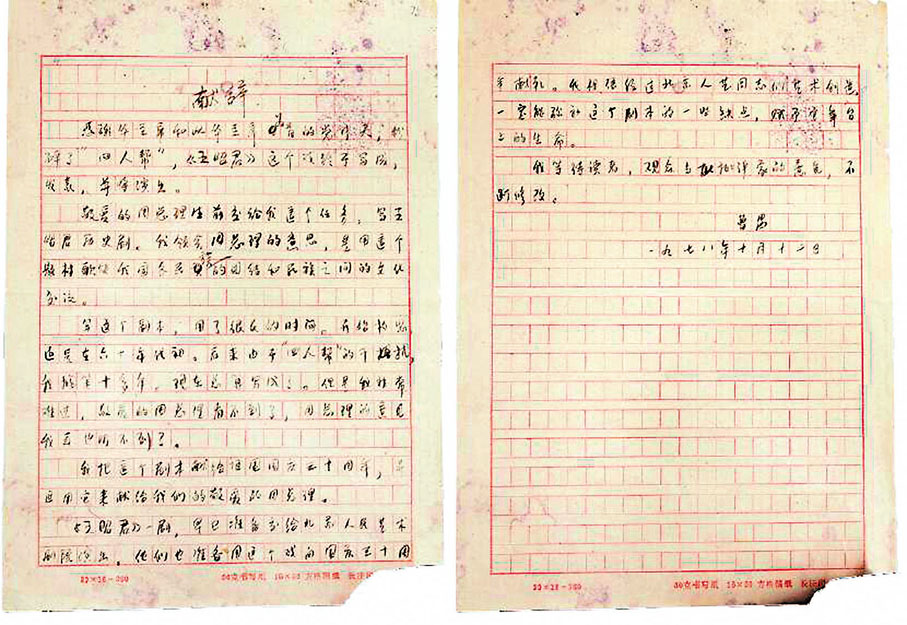 献辞
感谢华主席和以华主席为首的党中央，粉
碎了“四人帮”，《王昭君》这个戏终于写成，
发表，并将演出。
敬爱的周总理生前交给我这个任务，写王
昭君历史剧。我领会周总理的意思，是用这个
题材歌颂我国各民族的团结和民族之间的文化
交流。
写这个剧本，用了很长的时间。开始构思
还是在六十年代初。后来由于“四人帮”的干扰，
我搁笔十多年。现在总算写成了。但是我非常
难过，敬爱的周总理看不到了，周总理的意见
我再也听不到了。
我把这个剧本献给祖国国庆三十周年，并
且用它来献给我们的敬爱的周总理。
《王昭君》一剧，早已准备交给北京人民艺术
剧院演出。他们也准备用这个戏向国庆三十周
20×15=300
30立书写纸 15×20 方格稿纸
年献礼。我相信经过北京人艺同志们艺术创造
一定能弥补这个剧本的一些缺点，赋予它舞台
上的生命。
我等待读者，观众与批评家的意见，不
断修改。
曹禺
一九七八年十月十二日
20×15=300
30立书写纸 15×20 方格稿纸